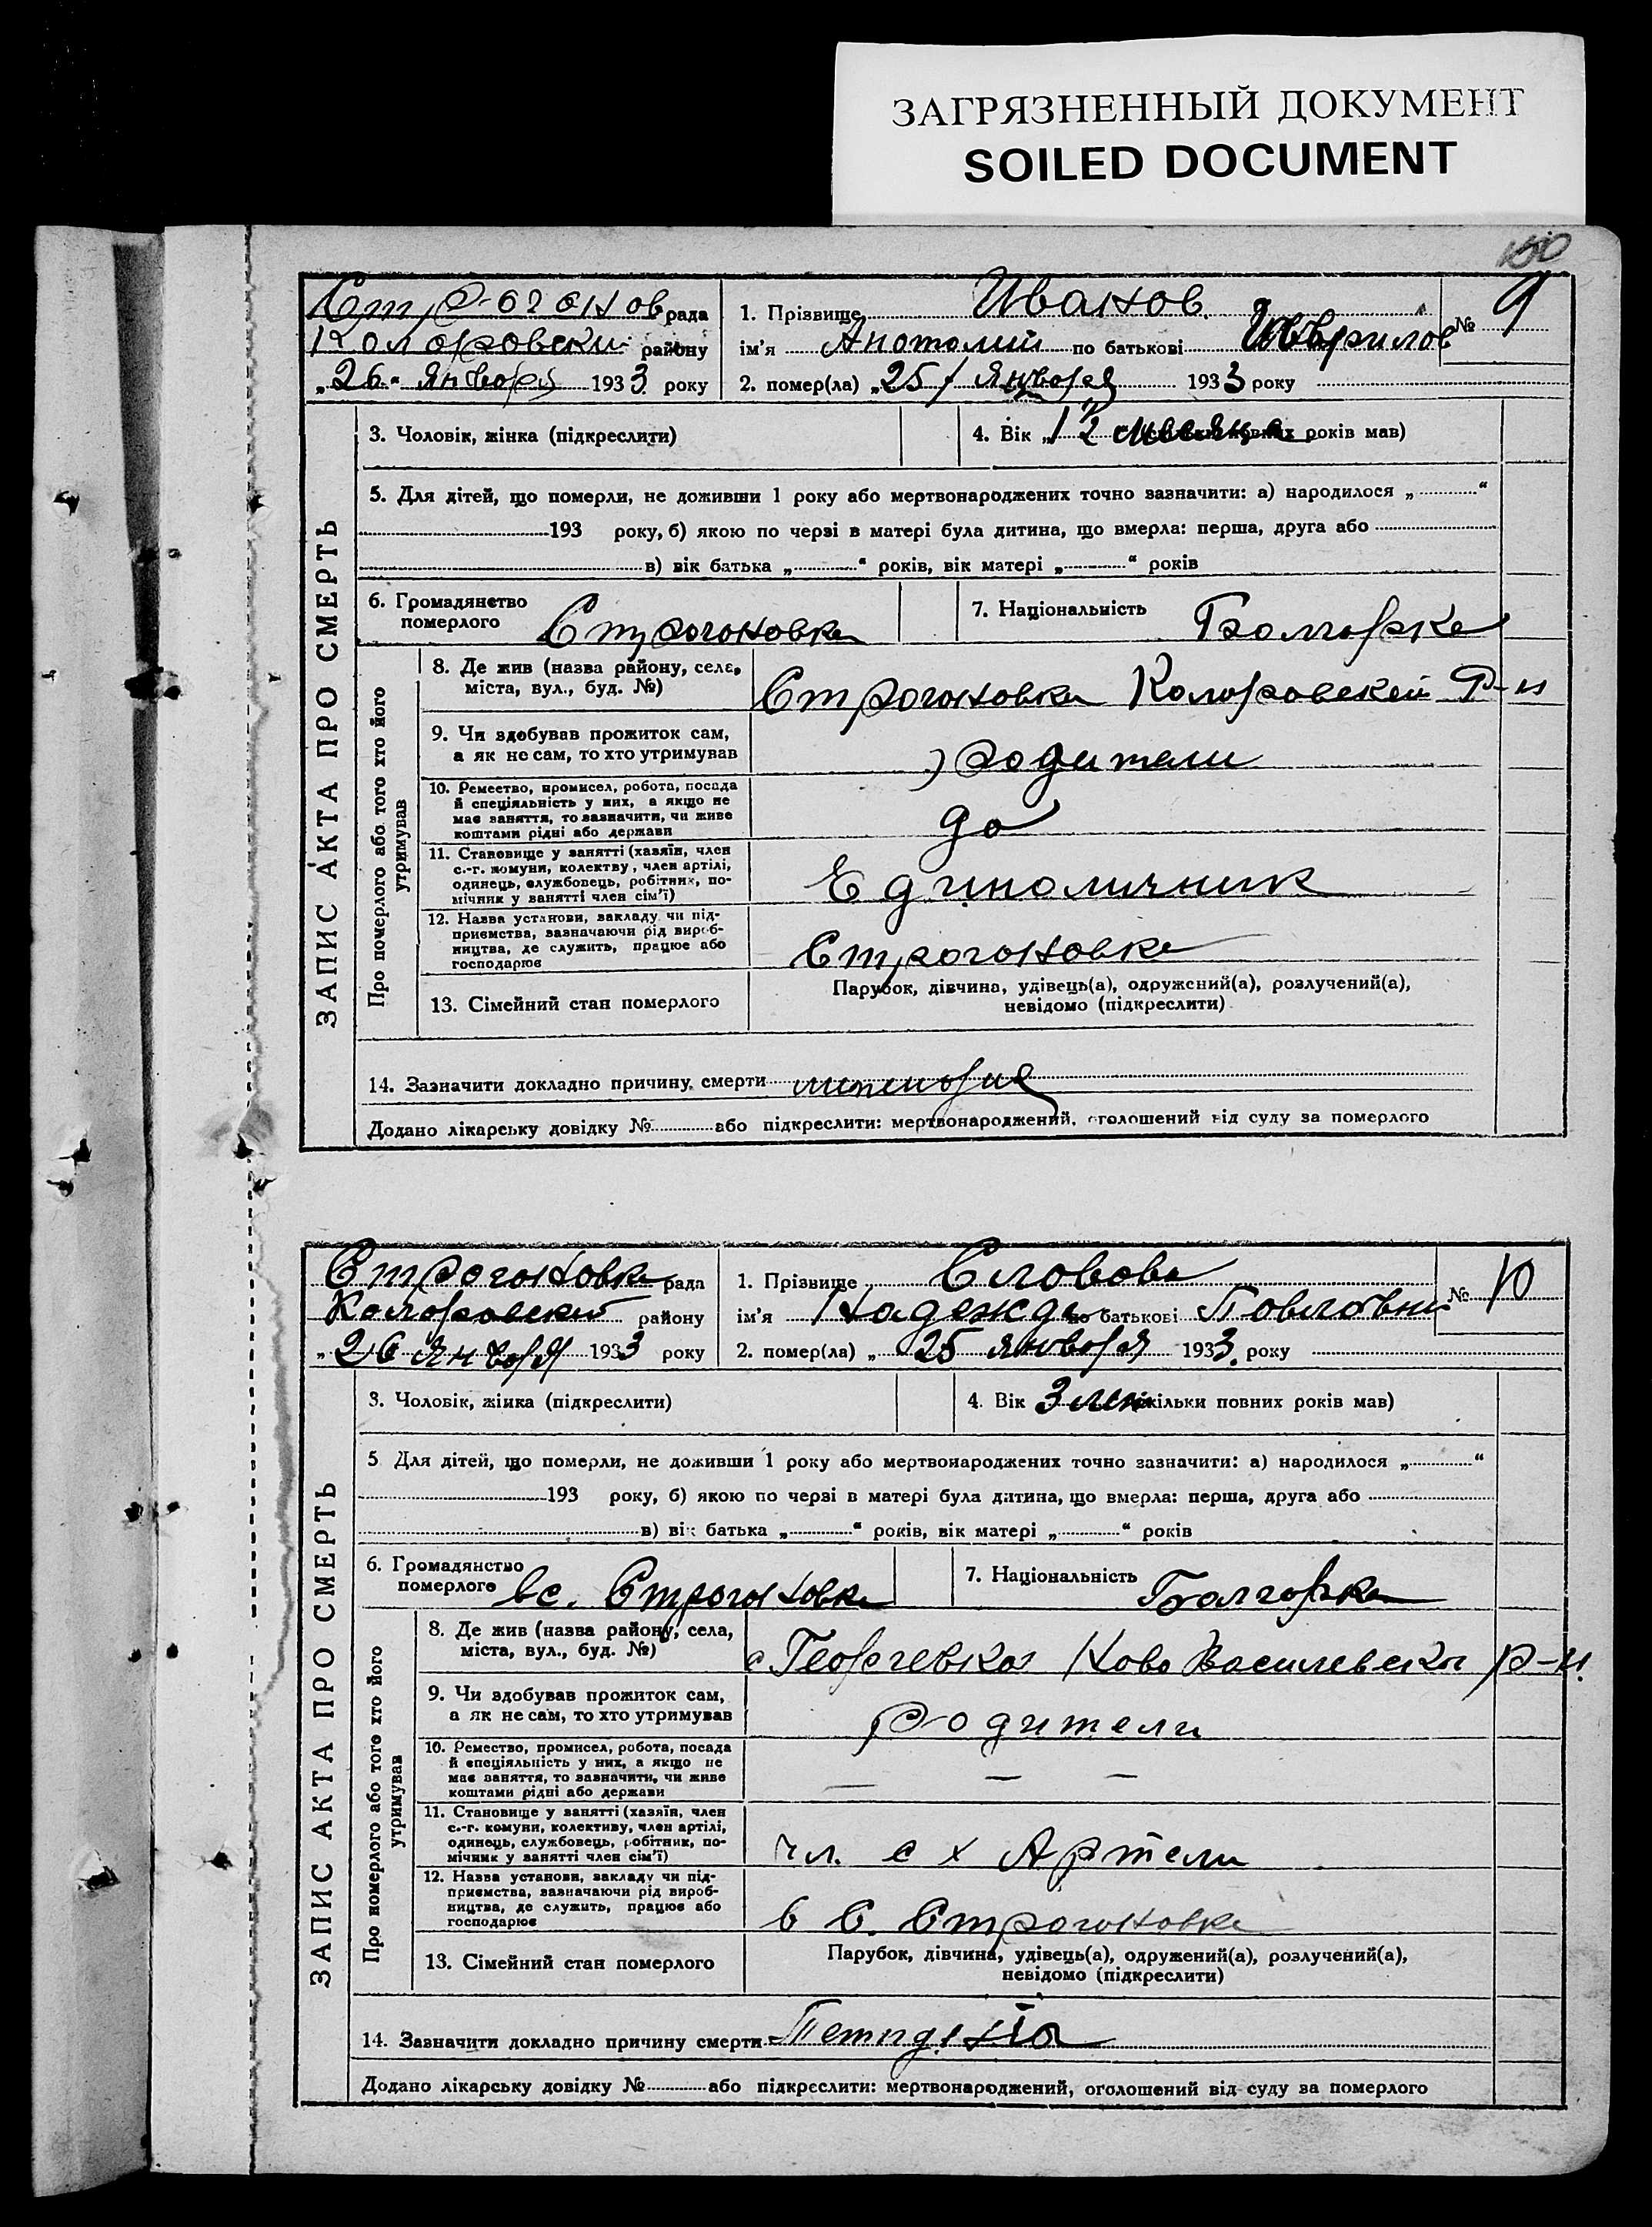 ЗАГРЯЗНЕННЫЙ ДОКУМЕНТ
SOILED DOCUMENT
150
рада
1. Прізвище Иванов
№ 9
району
ім'я Анатолий по батькові
„26" января 1933 року
2. помер(ла) „25 января 1933 року
3. Чоловік, жінка (підкреслити)
4. Вік „ 1½ месяца років мав)
5. Для дітей, що померли, не доживши 1 року або мертвонароджених точно зазначити: а) народилося „ “
193 року, б) якою по черзі в матері була дитина, що вмерла: перша, друга або
в) вік батька „ “ років, вік матері „ “ років
6. Громадянство померлого Строгоновка
7. Національність Болгарка
ЗАПИС АКТА ПРО СМЕРТЬ
Про померлого або того хто його утримував
8. Де жив (назва району, села, міста, вул., буд. №)
Строгоновка Коларовский Р-н
9. Чи здобував прожиток сам, а як не сам, то хто утримував
родители
10. Ремество, промисел, робота, посада й спеціяльність у них, а якщо не має заняття, то зазначити, чи живе коштами рідні або держави
до
11. Становище у занятті (хазяїн, член с.-г. комуни, колективу, член артілі, одинець, службовець, робітник, помічник у занятті член сім'ї)
Единоличник
12. Назва установи, закладу чи підприємства, зазначаючи рід виробництва, де служить, працює або господарює
Строгоновка
13. Сімейний стан померлого
Парубок, дівчина, удівець(а), одружений(а), розлучений(а),
невідомо (підкреслити)
14. Зазначити докладно причину смерти
Додано лікарську довідку № або підкреслити: мертвонароджений, оголошений від суду за померлого
Строгоновка рада
1. Прізвище Словова
№ 10
Коларовский району
ім'я Надежда по батькові Повловни
„26 января 1933 року
2. помер(ла) „ 25 января 1933 року
3. Чоловік, жінка (підкреслити)
4. Вік 3 скільки повних років мав)
5 Для дітей, що померли, не доживши 1 року або мертвонароджених точно зазначити: а) народилося „ “
193 року, б) якою по черзі в матері була дитина, що вмерла: перша, друга або
в) вік батька „ “ років, вік матері „ “ років
6. Громадянство померлого вс. Строгоновка
7. Національність Болгарка
ЗАПИС АКТА ПРО СМЕРТЬ
Про померлого або того хто його утримував
8. Де жив (назва району, села, міста, вул., буд. №)
с Георгевка Ново Василевска р-н.
9. Чи здобував прожиток сам, а як не сам, то хто утримував
родители
10. Ремество, промисел, робота, посада й спеціяльність у них, а якщо не має заняття, то зазначити, чи живе коштами рідні або держави
— — —
11. Становище у занятті (хазяїн, член с.-г. комуни, колективу, член артілі, одинець, службовець, робітник, помічник у занятті член сім'ї)
чл. с х Артели
12. Назва установи, закладу чи підприємства, зазначаючи рід виробництва, де служить, працює або господарює
в С. Строгоновка
13. Сімейний стан померлого
Парубок, дівчина, удівець(а), одружений(а), розлучений(а),
невідомо (підкреслити)
14. Зазначити докладно причину смерти
Додано лікарську довідку № або підкреслити: мертвонароджений, оголошений від суду за померлого